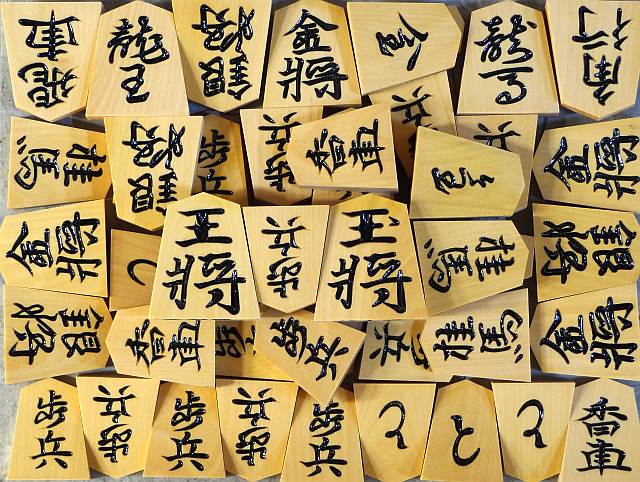 飛車
龍王
銀将
金将
龍馬
角行
桂馬
銀将
歩兵
歩兵
香車
歩兵
金将
金将
と
王将
歩兵
王将
桂馬
銀将
銀将
香車
歩
歩兵
歩兵
桂馬
金将
歩兵
歩兵
歩兵
歩兵
歩兵
と
と
と
香車